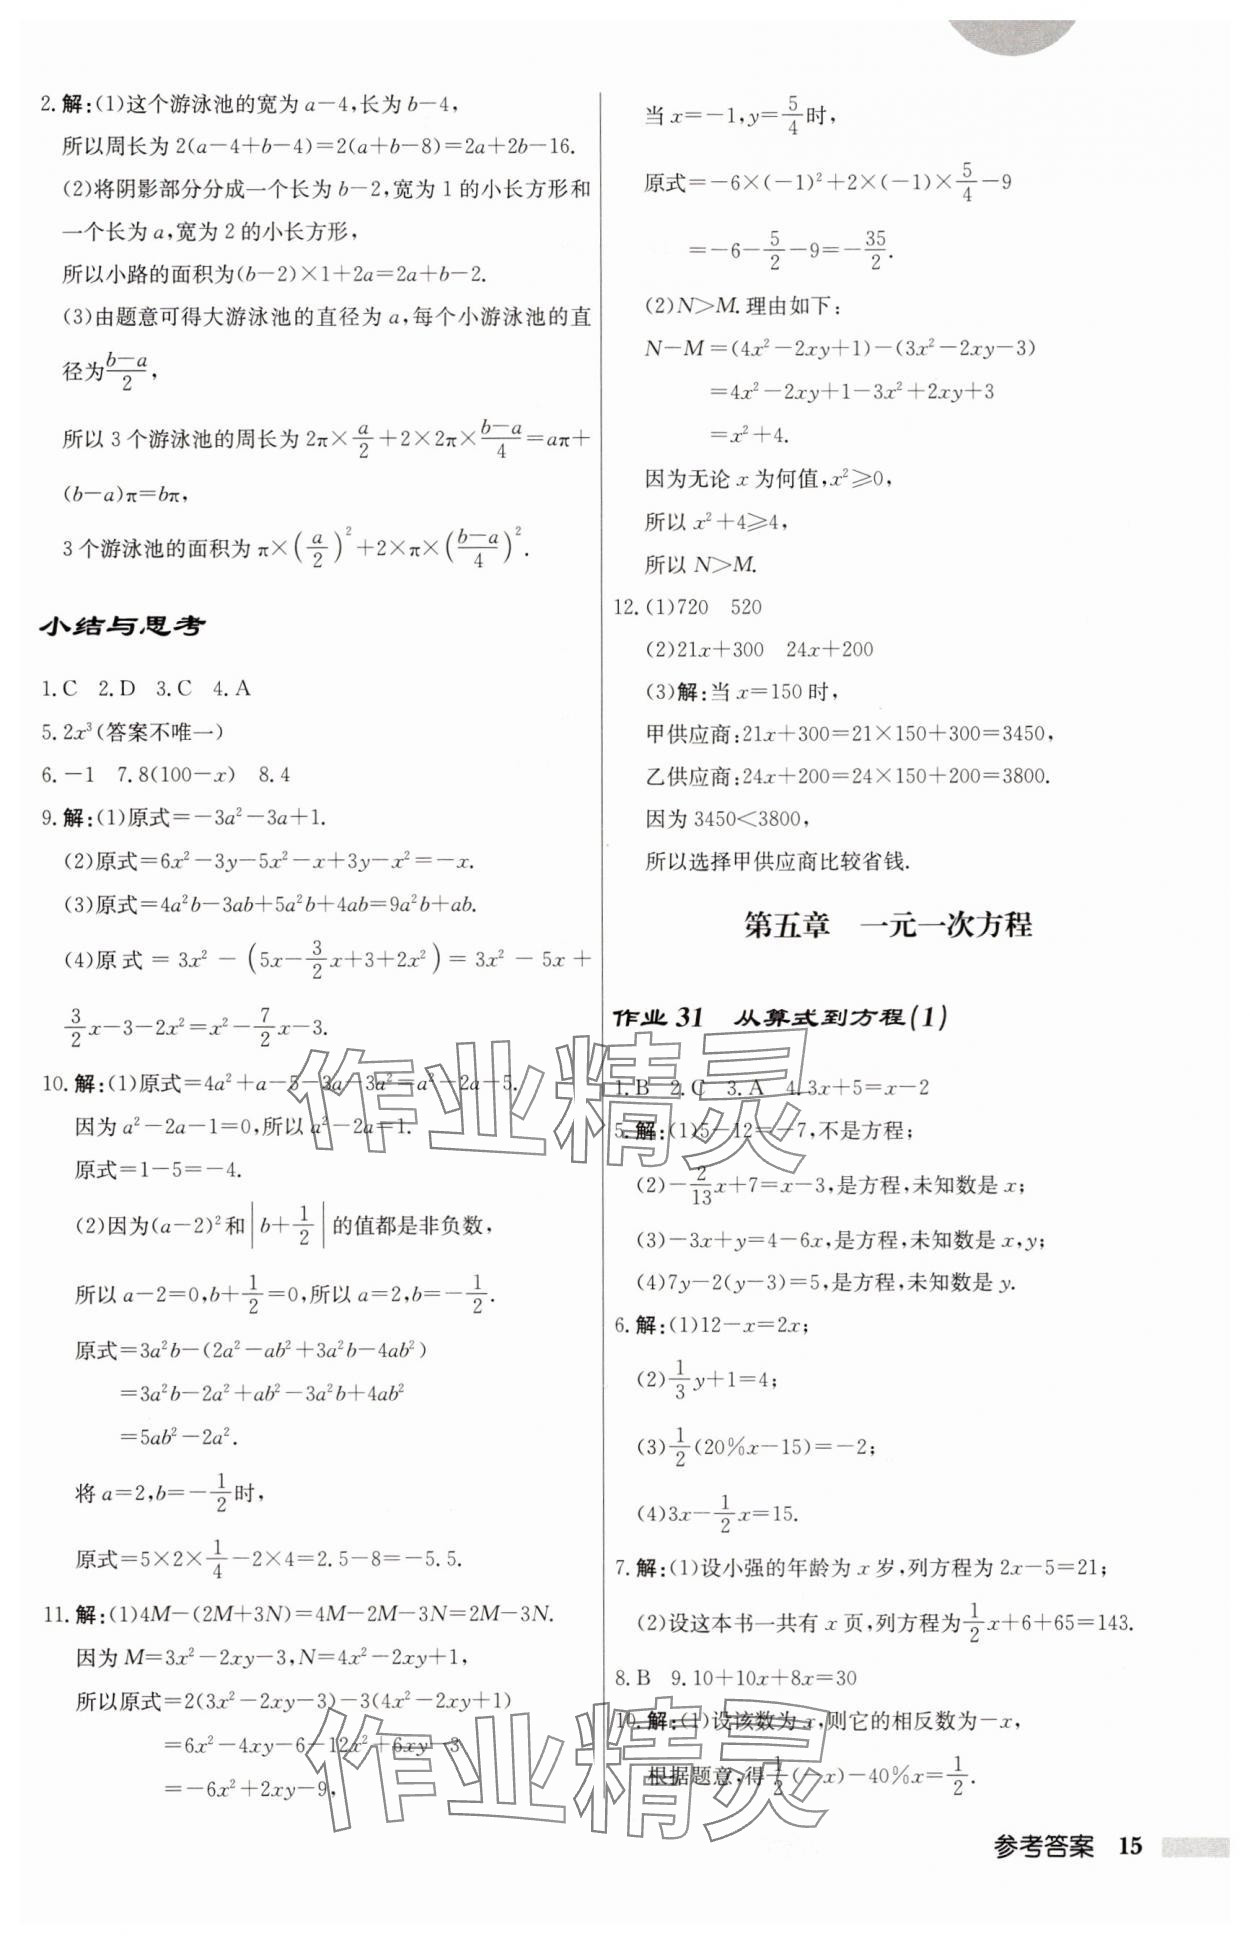 2. 解:(1)这个游泳池的宽为 a−4,长为 b−4,
所以周长为 2(a−4+b−4)=2(a+b−8)=2a+2b−16.
(2)将阴影部分分成一个长为 b−2,宽为 1 的小长方形和
一个长为 a,宽为 2 的小长方形,
所以小路的面积为(b−2)×1+2a=2a+b−2.
(3)由题意可得大游泳池的直径为 a,每个小游泳池的直
径为(b−a)/2,
所以 3 个游泳池的周长为 2π×a/2+2×2π×(b−a)/4=aπ+
(b−a)π=bπ,
3 个游泳池的面积为 π×(a/2)²+2×π×((b−a)/4)².
小结与思考
1. C 2. D 3. C 4. A
5. 2x³(答案不唯一)
6. −1 7. 8(100−x) 8. 4
9. 解:(1)原式=−3a²−3a+1.
(2)原式=6x²−3y−5x²−x+3y−x²=−x.
(3)原式=4a²b−3ab+5a²b+4ab=9a²b+ab.
(4)原式=3x²−(5x−3/2x+3+2x²)=3x²−5x+
3/2x−3−2x²=x²−7/2x−3.
10. 解:(1)原式=4a²+a−5−3a−3a²=a²−2a−5.
因为 a²−2a−1=0,所以 a²−2a=1.
原式=1−5=−4.
(2)因为(a−2)²和|b+1/2|的值都是非负数,
所以 a−2=0,b+1/2=0,所以 a=2,b=−1/2.
原式=3a²b−(2a²−ab²+3a²b−4ab²)
=3a²b−2a²+ab²−3a²b+4ab²
=5ab²−2a².
将 a=2,b=−1/2时,
原式=5×2×1/4−2×4=2.5−8=−5.5.
11. 解:(1)4M−(2M+3N)=4M−2M−3N=2M−3N.
因为 M=3x²−2xy−3,N=4x²−2xy+1,
所以原式=2(3x²−2xy−3)−3(4x²−2xy+1)
=6x²−4xy−6−12x²+6xy−3
=−6x²+2xy−9,
当 x=−1,y=5/4时,
原式=−6×(−1)²+2×(−1)×5/4−9
=−6−5/2−9=−35/2.
(2)N>M.理由如下:
N−M=(4x²−2xy+1)−(3x²−2xy−3)
=4x²−2xy+1−3x²+2xy+3
=x²+4.
因为无论 x 为何值,x²⩾0,
所以 x²+4⩾4,
所以 N>M.
12. (1)720 520
(2)21x+300 24x+200
(3)解:当 x=150 时,
甲供应商:21x+300=21×150+300=3450,
乙供应商:24x+200=24×150+200=3800.
因为 3450<3800,
所以选择甲供应商比较省钱.
第五章 一元一次方程
作业 31 从算式到方程(1)
1. B 2. C 3. A 4. 3x+5=x−2
5. 解:(1)5−12=−7,不是方程;
(2)−2/13x+7=x−3,是方程,未知数是 x;
(3)−3x+y=4−6x,是方程,未知数是 x,y;
(4)7y−2(y−3)=5,是方程,未知数是 y.
6. 解:(1)12−x=2x;
(2)1/3y+1=4;
(3)1/2(20%x−15)=−2;
(4)3x−1/2x=15.
7. 解:(1)设小强的年龄为 x 岁,列方程为 2x−5=21;
(2)设这本书一共有 x 页,列方程为1/2x+6+65=143.
8. B 9. 10+10x+8x=30
10. 解:(1)设该数为 x,则它的相反数为−x,
根据题意,得1/2(−x)−40%x=1/2.
参考答案 15
作业精灵
作业精灵